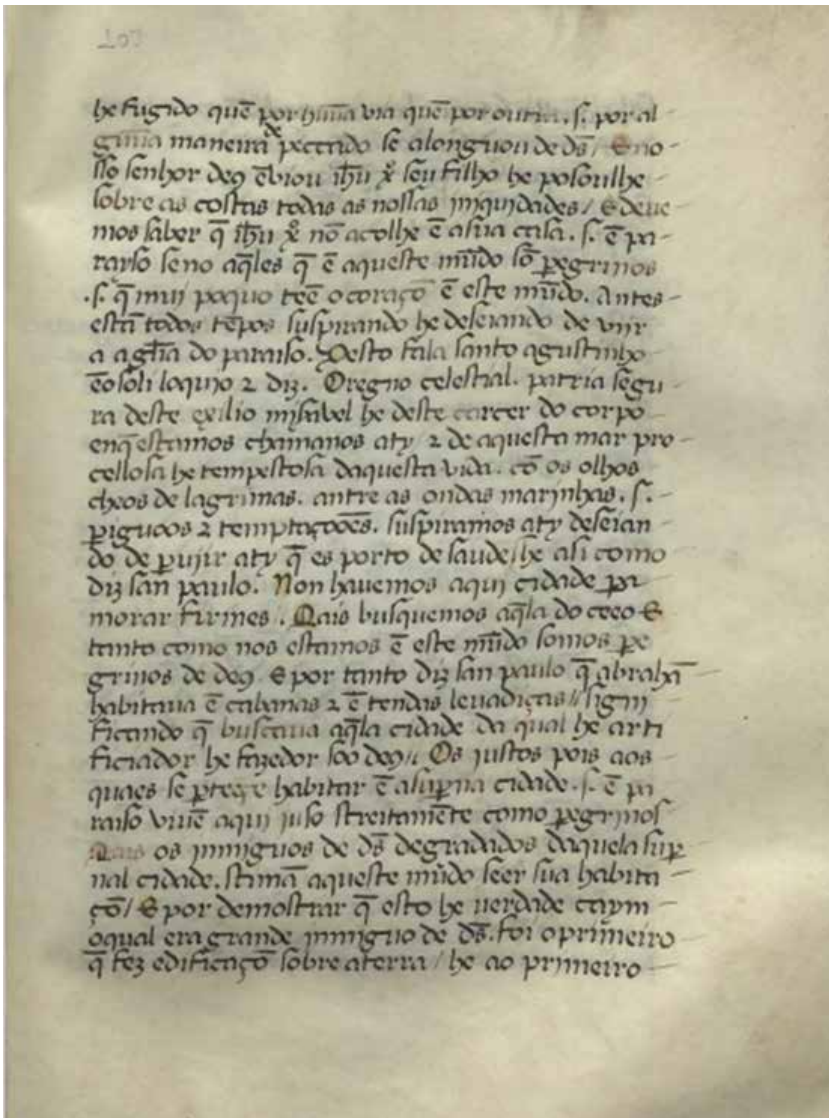 he fugido quẽ por huũa via quẽ por outra .ſ. por al
guũa maneira de peccado ſe alonguou de dš / E no
ſſo ſenhor deꝯ ẽviou ih̃u xº ſeu filho he poſoulhe
ſobre as coſtas todas as noſſas jniquidades / E deue
mos ſaber q̃ ih̃u xº nõ acolhe ẽ aſua caſa .ſ. ẽ pa
raiſo ſeno aq̃les q̃ ẽ aqueste mũdo ſõ ꝑegrinos
.ſ. q̃ mui poquo teẽ o coraçõ ẽ este mũdo. Antes
estã todos tẽpos ſuſpirando he deſeiando de viir
a a gl̃ia do paraiſo. Desto fala ſanto agustinho
ẽo ſoliloquio ⁊ diz. O regno celestial. patria ſegu
ra deste exilio miſavel he deste carcer do corpo
enq̃ estamos chamanos aty ⁊ de aquesta mar pro
celloſa he tempestoſa daquesta vida. cõ os olhos
cheos de lagrimas. antre as ondas marinhas .ſ.
ꝑiguoos ⁊ temptaçooẽs. ſuſpiramos aty deſeian
do de ꝑujir aty q̃ es porto de ſaude / he aſi como
diz ſan paulo. Non havemos aqui cidade pa
morar firmes. Mais buſquemos aq̃la do ceeo E
tanto como nos estamos ẽ este mũdo ſomos ꝑe
grinos de deꝯ E por tanto diz ſan paulo q̃ abrahã
habitaua ẽ cabanas ⁊ ẽ tendas leuadiças // ſigni
ficando q̃ buſcaua aq̃la cidade da qual he arti
ficiador he fazedor ſoo deꝯ // Os justos pois aos
quaes ſe ꝑteeçe habitar ẽ aſuꝑna cidade .ſ. ẽ pa
raiſo viuẽ aqui juſo streitamẽte como ꝑegrinos
Mais os jnmiguos de dš degradados daquela ſuꝑ
nal cidade. stimã aqueste mũdo ſeer ſua habita
çõ / E por demostrar q̃ esto he uerdade caym
oqual era grande jnmiguo de dš. foi o prĩmeiro
q̃ fez edificaçõ ſobre a terra / he ao primeiro